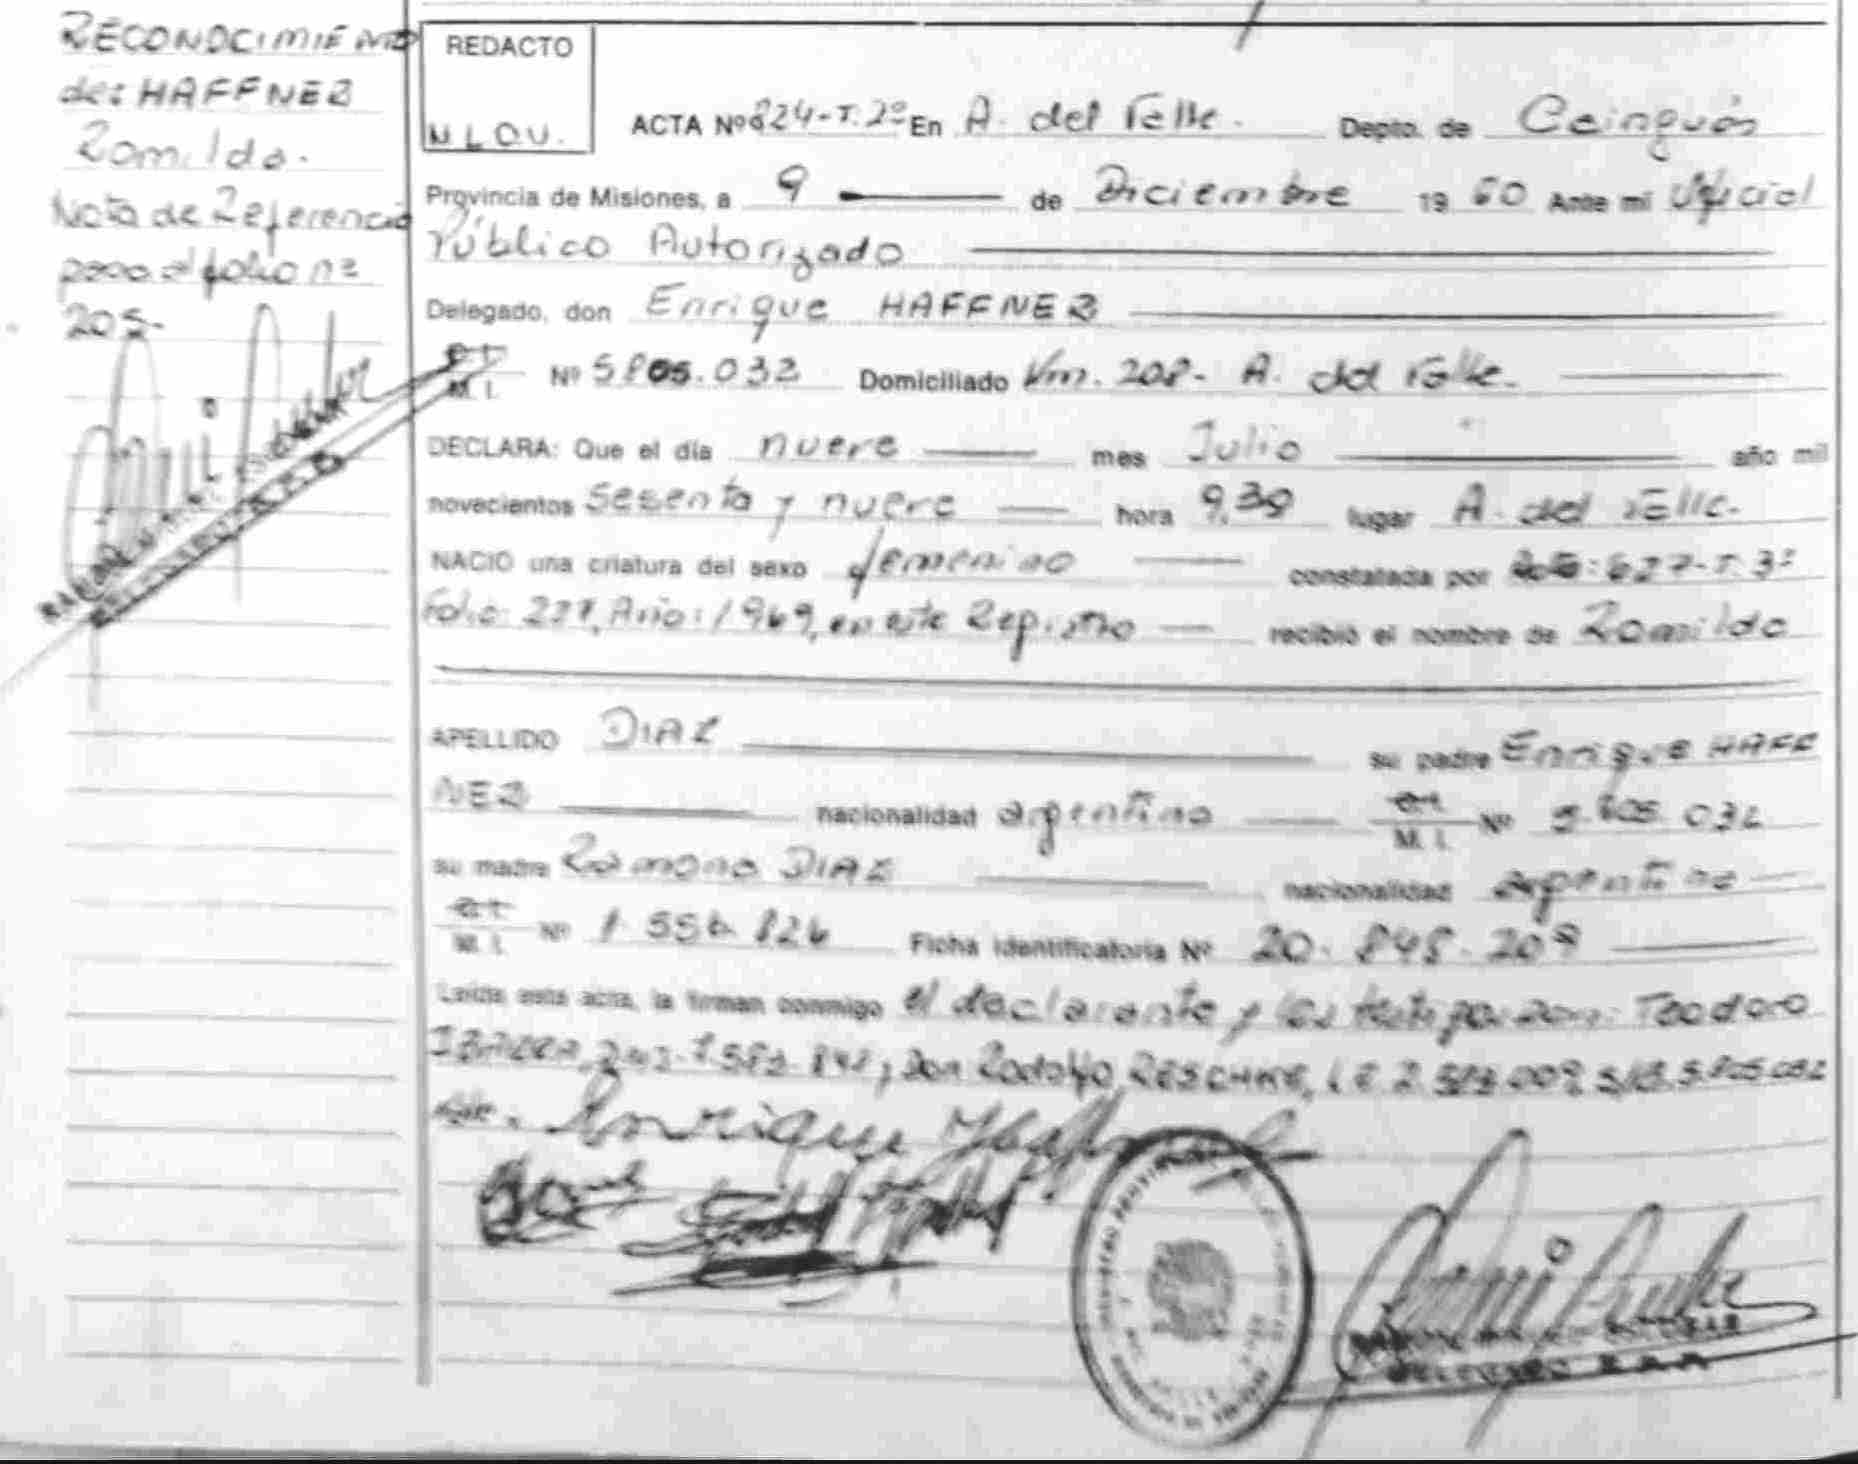 RECONOCIMIENTO
de: HAFFNER
Romilda.
Nota de Referencia
para el folio nº
205-
REDACTO
N L O.V.
ACTA Nº 824-T.2º En A. del Valle. Depto. de Cainguás
Provincia de Misiones, a 9 de Diciembre 19 80 Ante mi Oficial
Público Autorizado
Delegado, don Enrique HAFFNER
M. I. Nº 5.805.032 Domiciliado Km. 208- A. del Valle.
DECLARA: Que el día nueve mes Julio año mil
novecientos sesenta y nueve hora 9,30 lugar A. del Valle.
NACIO una criatura del sexo femenino constatada por Acta: 627-T.3º
Folio: 227, Año: 1969, en este Registro recibió el nombre de Romilda
APELLIDO DIAZ su padre Enrique HAFF
NER nacionalidad argentina M. I. Nº 5.805.032
su madre Ramona DIAZ nacionalidad argentina
M. I. Nº 1.556.826 Ficha identificatoria Nº 20.848.209
Leída esta acta, la firman conmigo el declarante y los testigos don: Teodoro
don Rodolfo RESCHKE, L.E. 5.805.032
Vale. Enrique Haffner